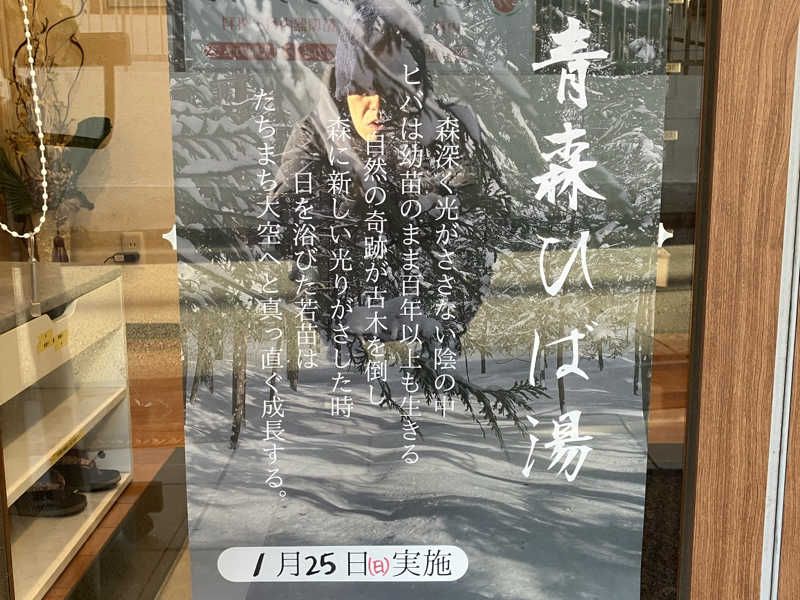 青森ひば湯
森深く光がささない陰の中
ヒバは幼苗のまま百年以上も生きる
自然の奇跡が古木を倒し
森に新しい光りがさした時
日を浴びた若苗は
たちまち大空へと真っ直ぐ成長する。
1月25日(日)実施